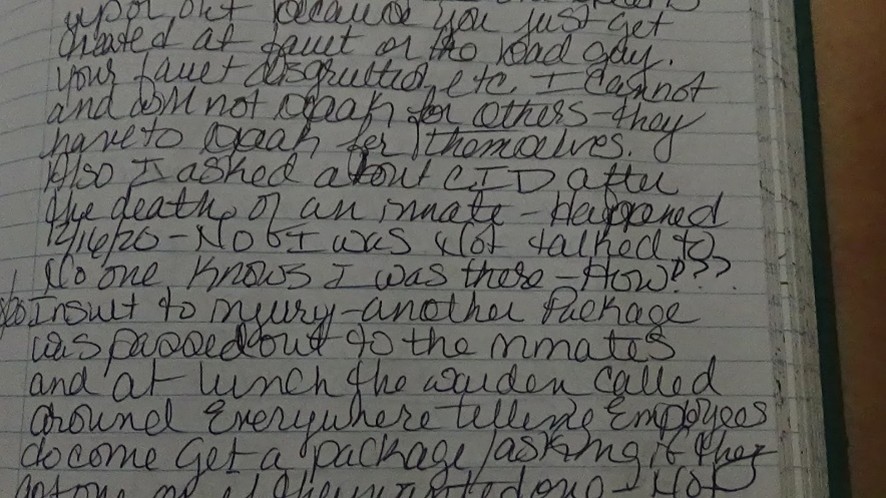 because you just get
at fault or the bad guy.
your fault disgruntled, etc. I cannot
and will not speak for others-they
have to speak for themselves.
Also I asked about CID after
the death of an inmate - Happened
12/16/20 - No I was Not talked to
No one knows I was there - How???
Insult to injury - another Package
was passed out to the inmates
and at lunch the warden called
around Everywhere telling Employees
to come Get a package/asking if they